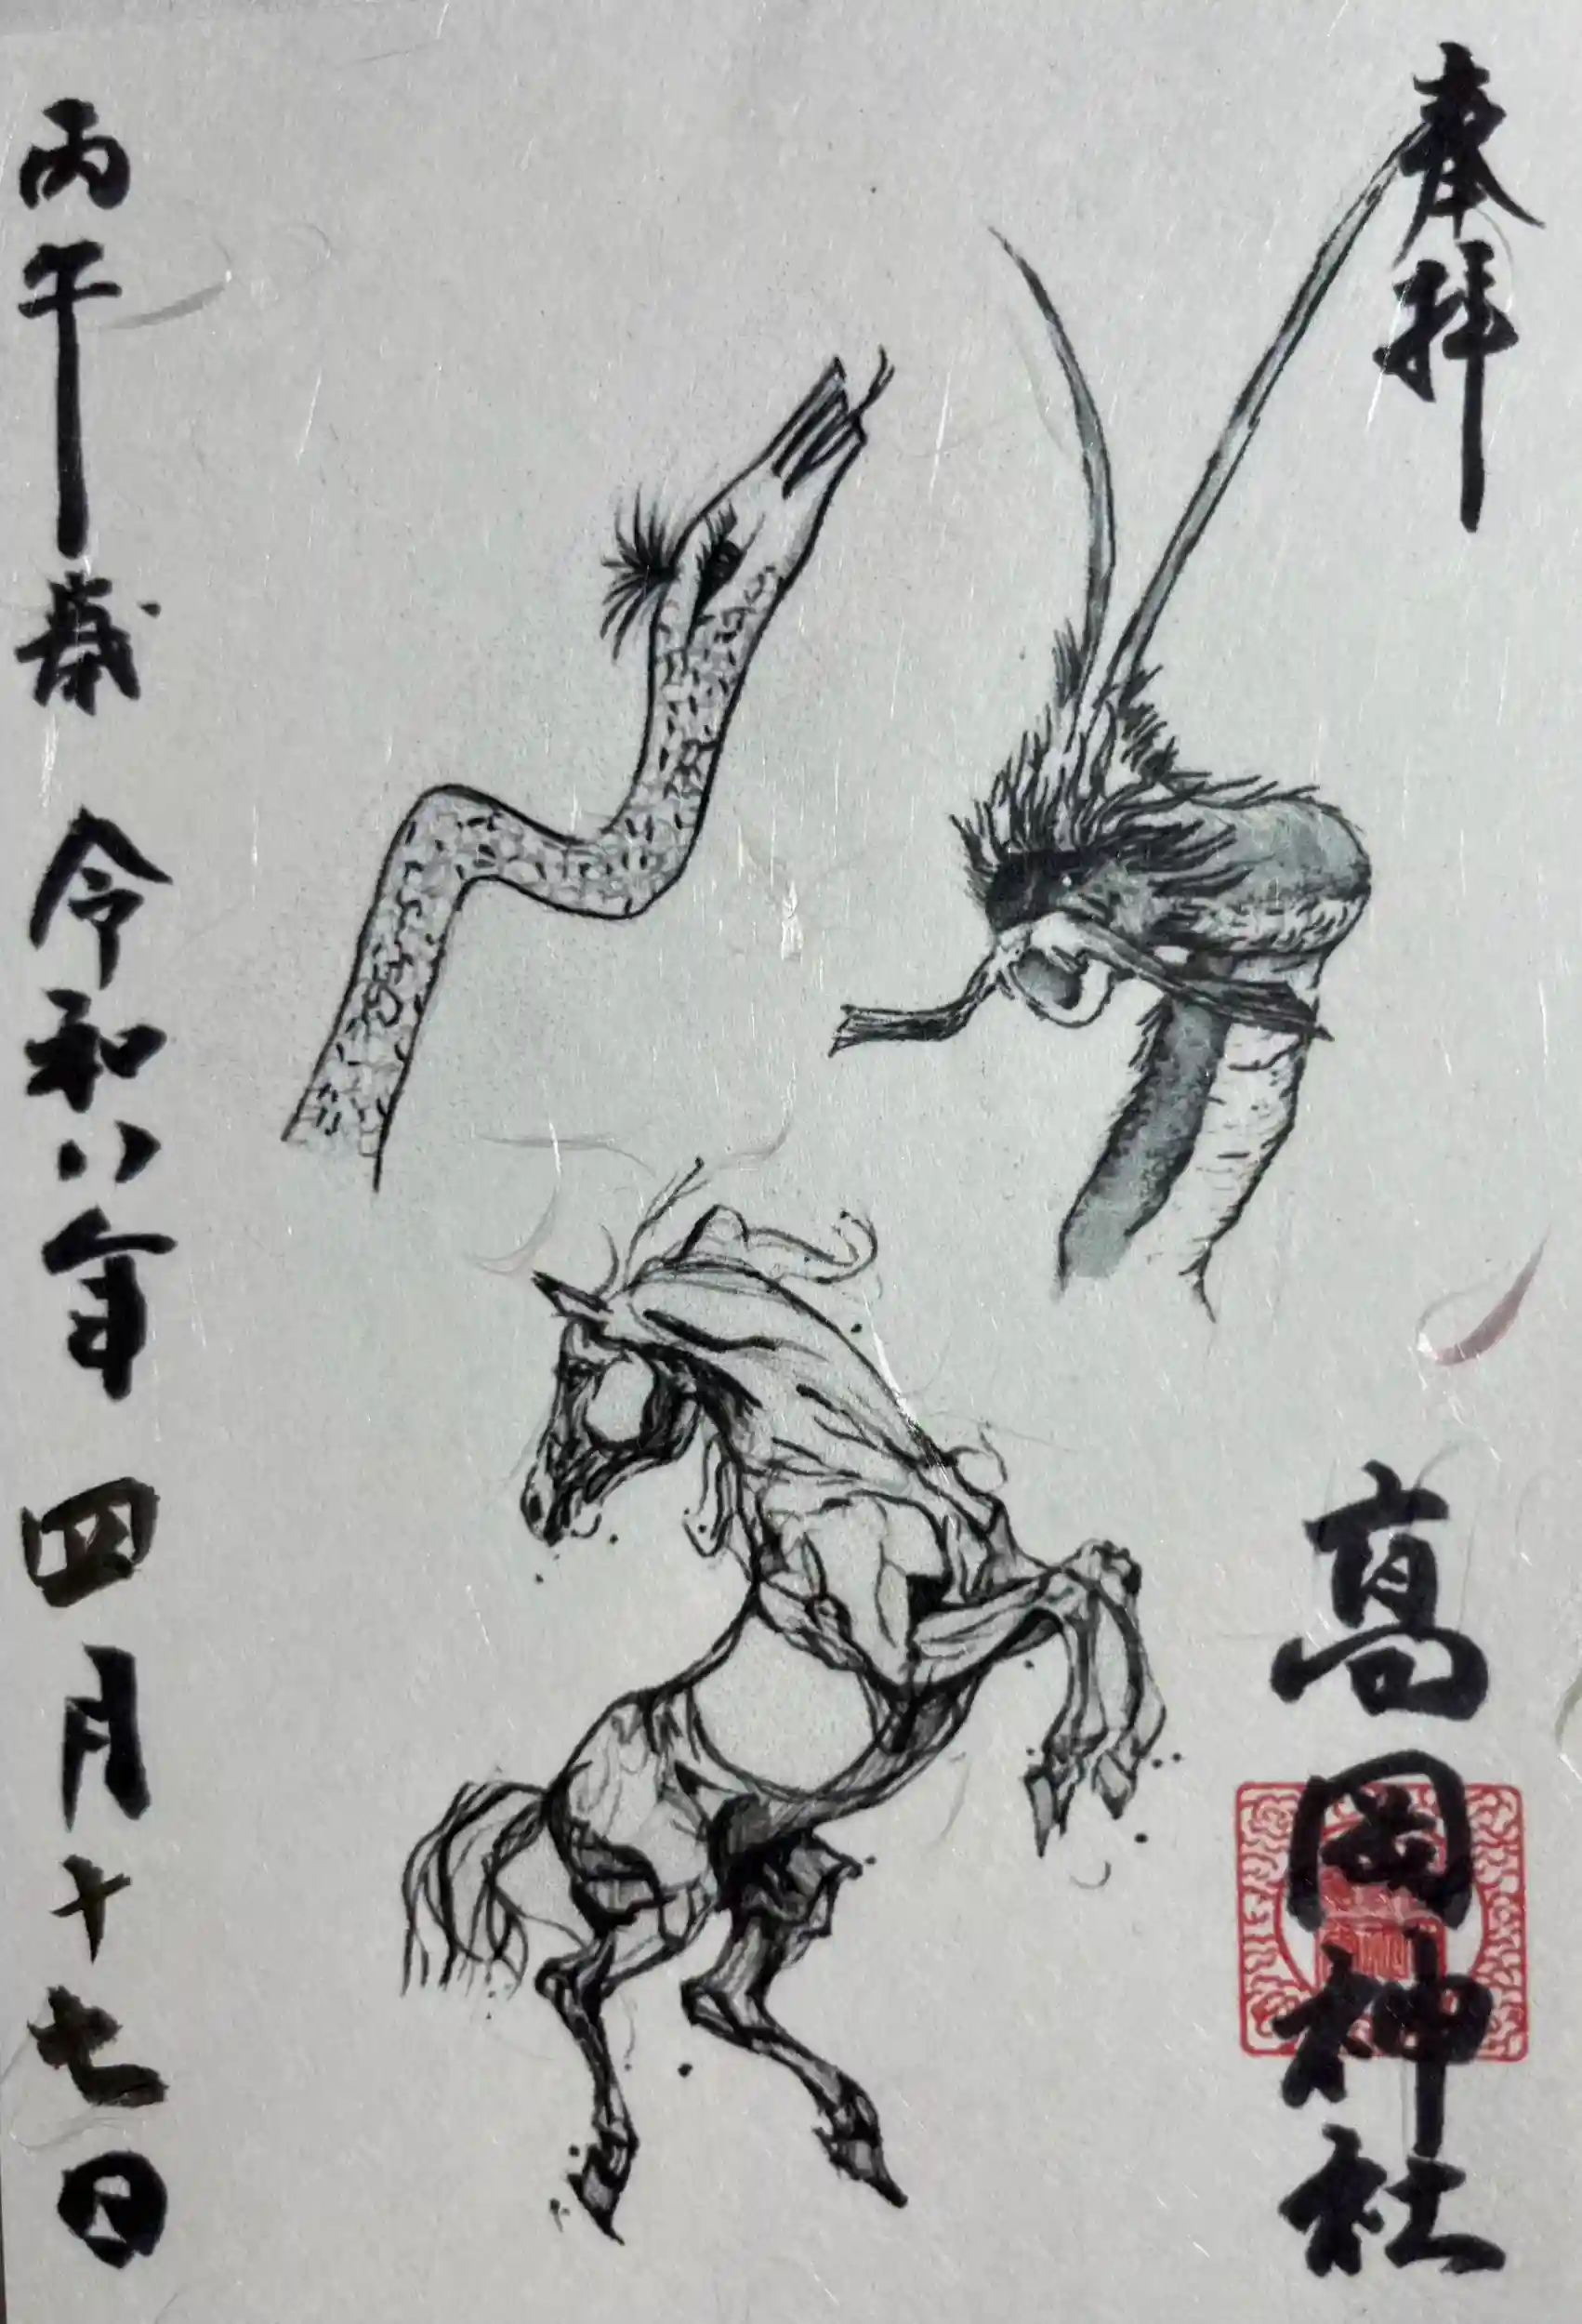 奉拝
高岡神社
丙午歳 令和八年 四月十七日